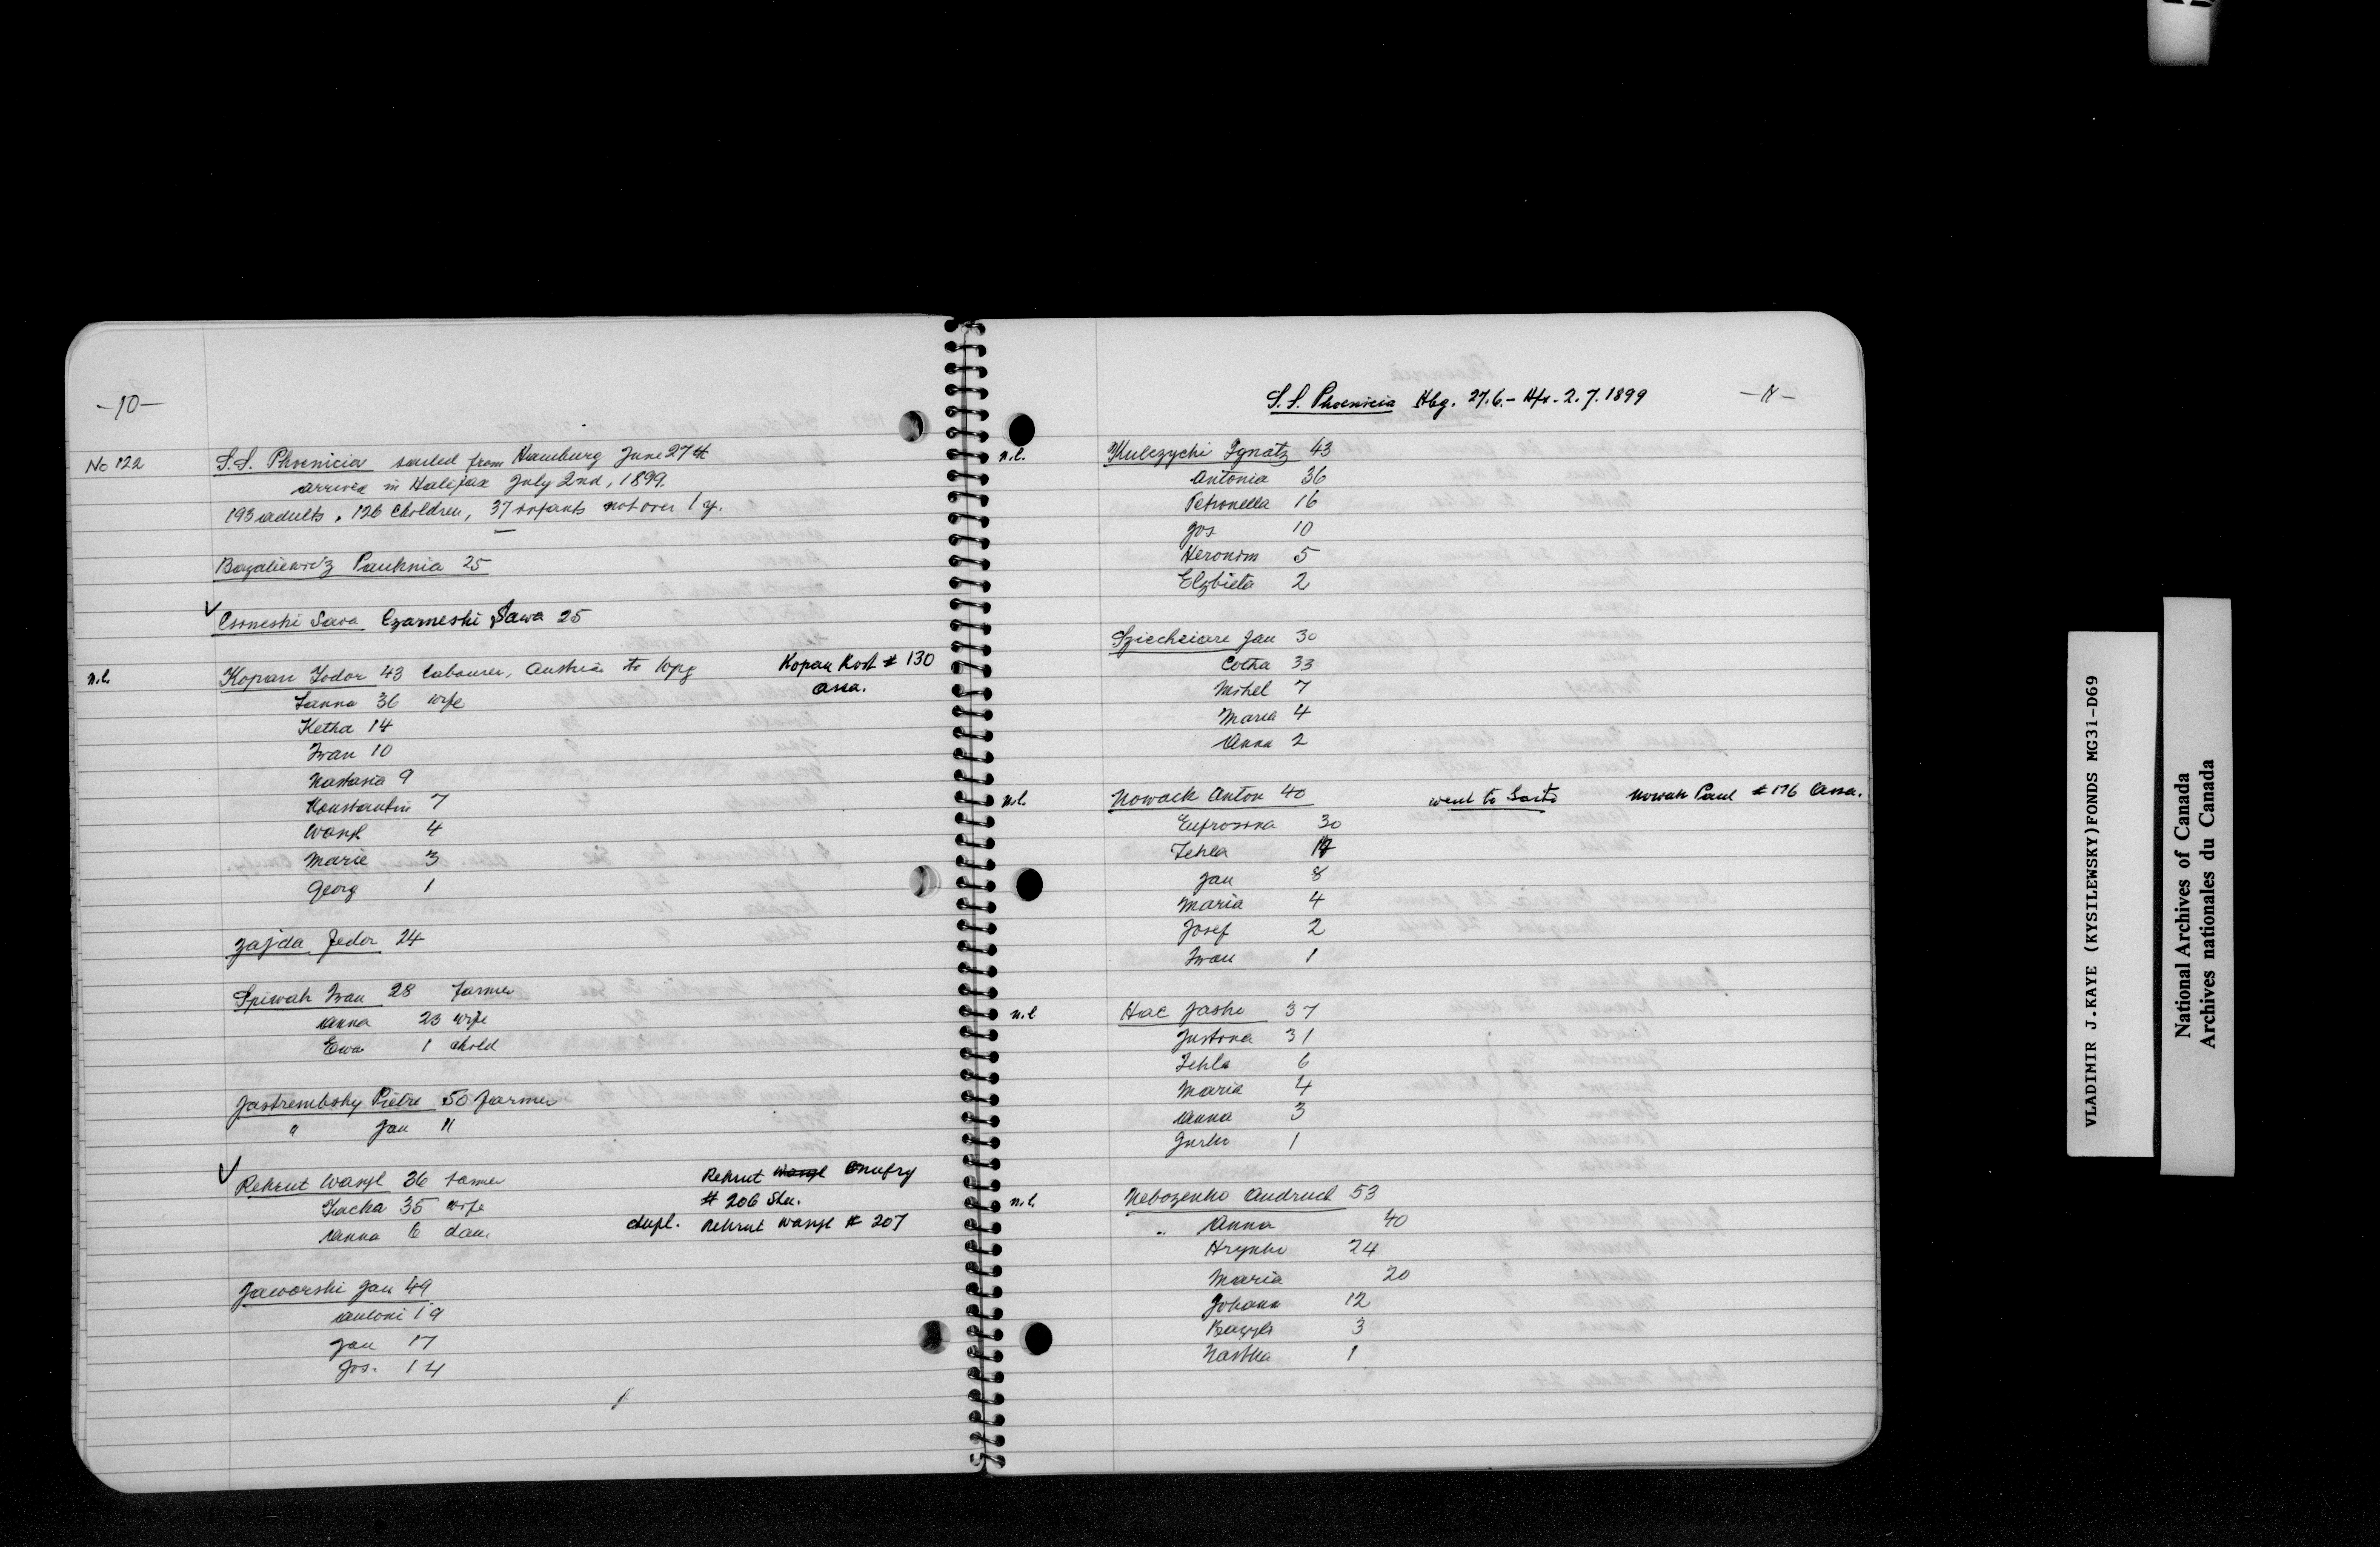 -10-
No 122
S.S. Phoenicia sailed from Hamburg June 27th
arrived in Halifax July 2nd, 1899.
193 adults, 126 children, 37 infants not over 1 y.
Bazaliewicz Pauknia 25
✓ Csoneski Sava Czarneski Sawa 25
n.l. Kopan Fodor 43 labourer, Austria to Wpg Kopan Kost # 130
Assa.
Fanna 36 wife
Ketha 14
Iwan 10
Nastasia 9
Konstantin 7
Wasyl 4
Marie 3
Georg 1
Zajda Fedor 24
Spiwak Iwan 28 farmer
Anna 23 wife
Ewa 1 child
Jastrembsky Pietre 50 farmer
" Jan 11
✓ Rekrut Wasyl 36 farmer Rekrut Wasyl Onufry
Kacha 35 wife # 206 Sha.
Anna 6 dau. dupl. Rekrut Wasyl # 207
Jaworski Jan 49
Antoni 19
Jan 17
Jos. 14
S.S. Phoenicia Hbg. 27.6.- Hfx. 2.7.1899 -11-
n.l. Kulczycki Ignatz 43
Antonia 36
Petronella 16
Jos 10
Heronim 5
Elzbieta 2
Jan 30
Cotha 33
Mihel 7
Maria 4
Anna 2
n.l. Nowack Anton 40 went to Sarto Nowak Paul # 176 Assa.
Eufrosina 30
Tekla
Jan 8
Maria 4
Josef 2
Iwan 1
n.l Hac Jasko 37
Justina 31
Tekla 6
Maria 4
Anna 3
Jurko 1
n.l. Nebozenko Andruch 53
" Anna 40
Hrynko 24
Maria 20
Johann 12
Bazyli 3
Nastka 1
VLADIMIR J.KAYE (KYSILEWSKY)FONDS MG31-D69
National Archives of Canada
Archives nationales du Canada